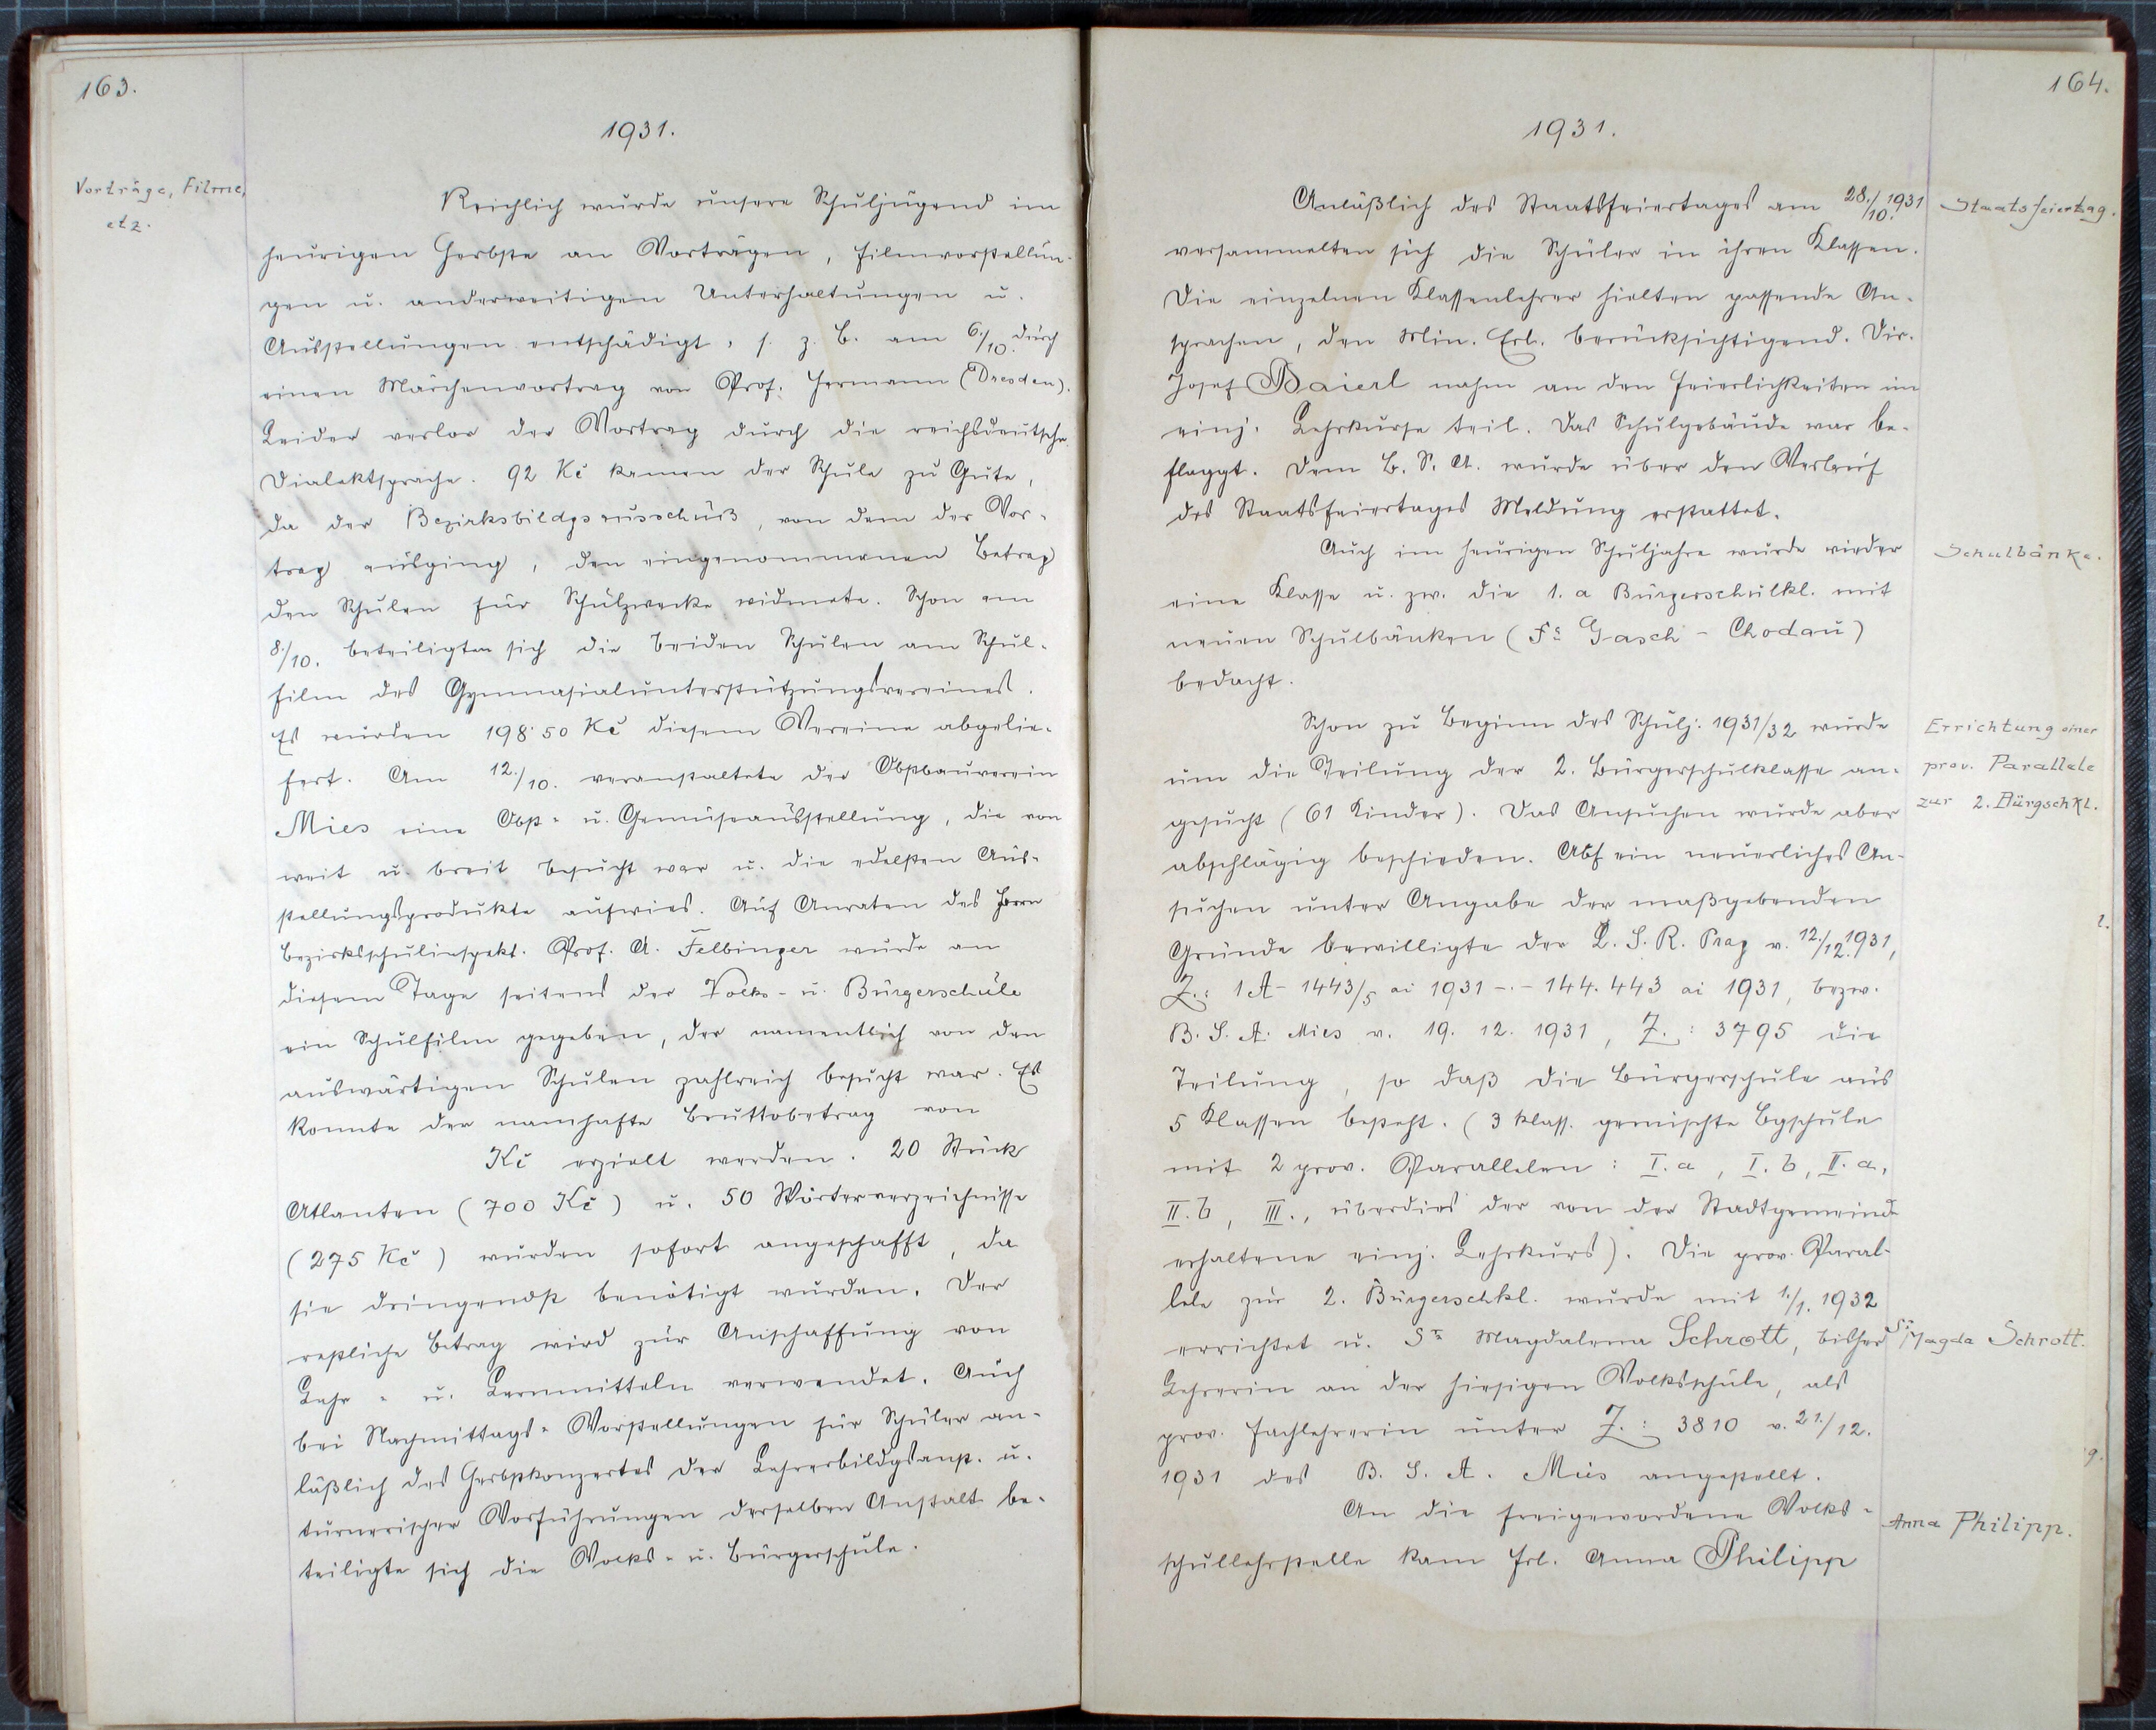 163.
1931.
Vorträge, Filme,
etz.
Reichlich wurde unsere Schuljugend im
heurigen Herbste an Vorträgen, Filmvorstellun-
gen u. anderweitigen Unterhaltungen u.
Ausstellungen entschädigt, s. z. B. am 6./10. durch
einen Märchenvortrag von Prof. Hermann (Dresden).
Leider verlor der Vortrag durch die reichsdeutsche
Dialektsprache. 92 Kč kamen der Schule zu Gute,
da der Bezirksbildgsausschuß, von dem der Vor-
trag ausging, den eingenommenen Betrag
den Schulen für Schulzwecke widmete. Schon am
8./10. beteiligten sich die beiden Schulen am Schul-
film des Gymnasialunterstützungsvereines.
Es wurden 198·50 Kč diesem Vereine abgelie-
fert. Am 12./10. veranstaltete der Obstbauverein
Mies eine Obst- u. Gemüseausstellung, die von
weit u. breit besucht war u. die edelsten Aus-
stellungsprodukte aufwies. Auf Anraten des Herrn
Bezirksschulinspekt. Prof. A. Felbinger wurde an
diesem Tage seitens der Volks- u. Bürgerschule
ein Schulfilm gegeben, der namentlich von den
auswärtigen Schulen zahlreich besucht war. Es
konnte der namhafte Bruttobetrag von
Kč erzielt werden. 20 Stück
Atlanten (700 Kč) u. 50 Wörterverzeichnisse
(275 Kč) wurden sofort angeschafft, da
sie dringendst benötigt wurden. Der
restliche Betrag wird zur Anschaffung von
Lehr- u. Lernmitteln verwendet. Auch
bei Nachmittags-Vorstellungen für Schüler an-
läßlich des Herbstkonzertes der Lehrerbildgsanst. u.
turnerischer Vorführungen derselben Anstalt be-
teiligte sich die Volks- u. Bürgerschule.
164.
1931.
Anläßlich des Staatsfeiertages am 28./10. 1931
Staatsfeiertag.
versammelten sich die Schüler in ihren Klassen.
Die einzelnen Klassenlehrer hielten passende An-
sprachen, den Min. Erl. berücksichtigend. Dir.
Josef Baierl nahm an den Feierlichkeiten im
einj. Lehrkurse teil. Das Schulgebäude war be-
flaggt. Dem B. S. A. wurde über den Verlauf
des Staatsfeiertages Meldung erstattet.
Auch im heurigen Schuljahre wurde wieder
Schulbänke.
eine Klasse u. zw. die 1. a Bürgerschulkl. mit
neuen Schulbänken (Fa Gasch - Chodau)
bedacht.
Schon zu Beginn des Schulj. 1931/32 wurde
Errichtung einer
prov. Parallele
zur 2. Bürgschkl.
um die Teilung der 2. Bürgerschulklasse an-
gesucht (61 Kinder). Das Ansuchen wurde aber
abschlägig beschieden. Auf ein neuerliches An-
suchen unter Angabe der maßgebenden
Gründe bewilligte der L. S. R. Prag v. 12./12. 1931,
Z.: 1 A - 1443/5 ai 1931 -.- 144.443 ai 1931, bezw.
B. S. A. Mies v. 19. 12. 1931, Z.: 3795 die
Teilung, so daß die Bürgerschule aus
5 Klassen besteht. (3 klass. gemischte Bgschule
mit 2 prov. Parallelen: I. a, I. b, II. a,
II. b, III., überdies der von der Stadtgemeinde
erhaltene einj. Lehrkurs). Die prov. Paral-
lele zur 2. Bürgerschkl. wurde mit 1./1. 1932
errichtet u. Sr Magdalena Schrott, bisher
Sr Magda Schrott.
Lehrerin an der hiesigen Volksschule, als
prov. Fachlehrerin unter Z.: 3810 v. 21./12.
1931 des B. S. A. Mies angestellt.
An die freigewordene Volks-
Anna Philipp.
schullehrstelle kam Frl. Anna Philipp